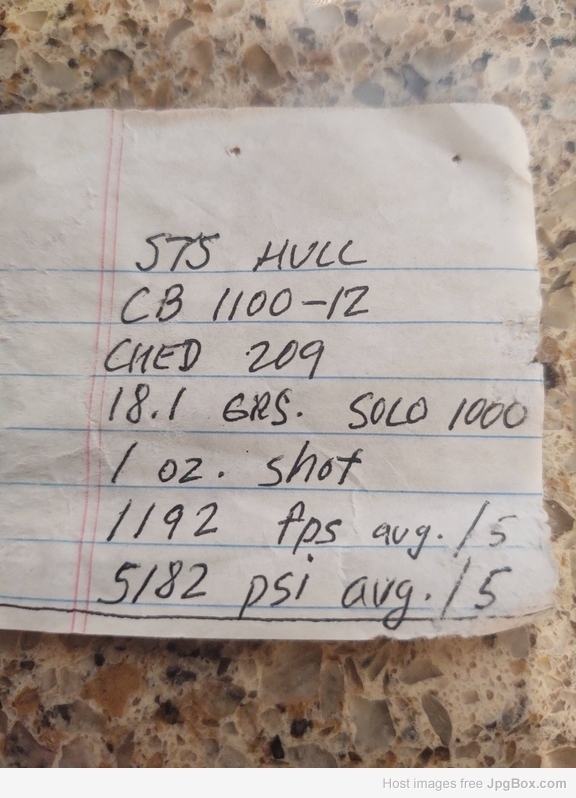 STS HULL
CB 1100-12
CHED 209
18.1 GRS. SOLO 1000
1 oz. shot
1192 fps avg./5
5182 psi avg./5
Host images free JpgBox.com